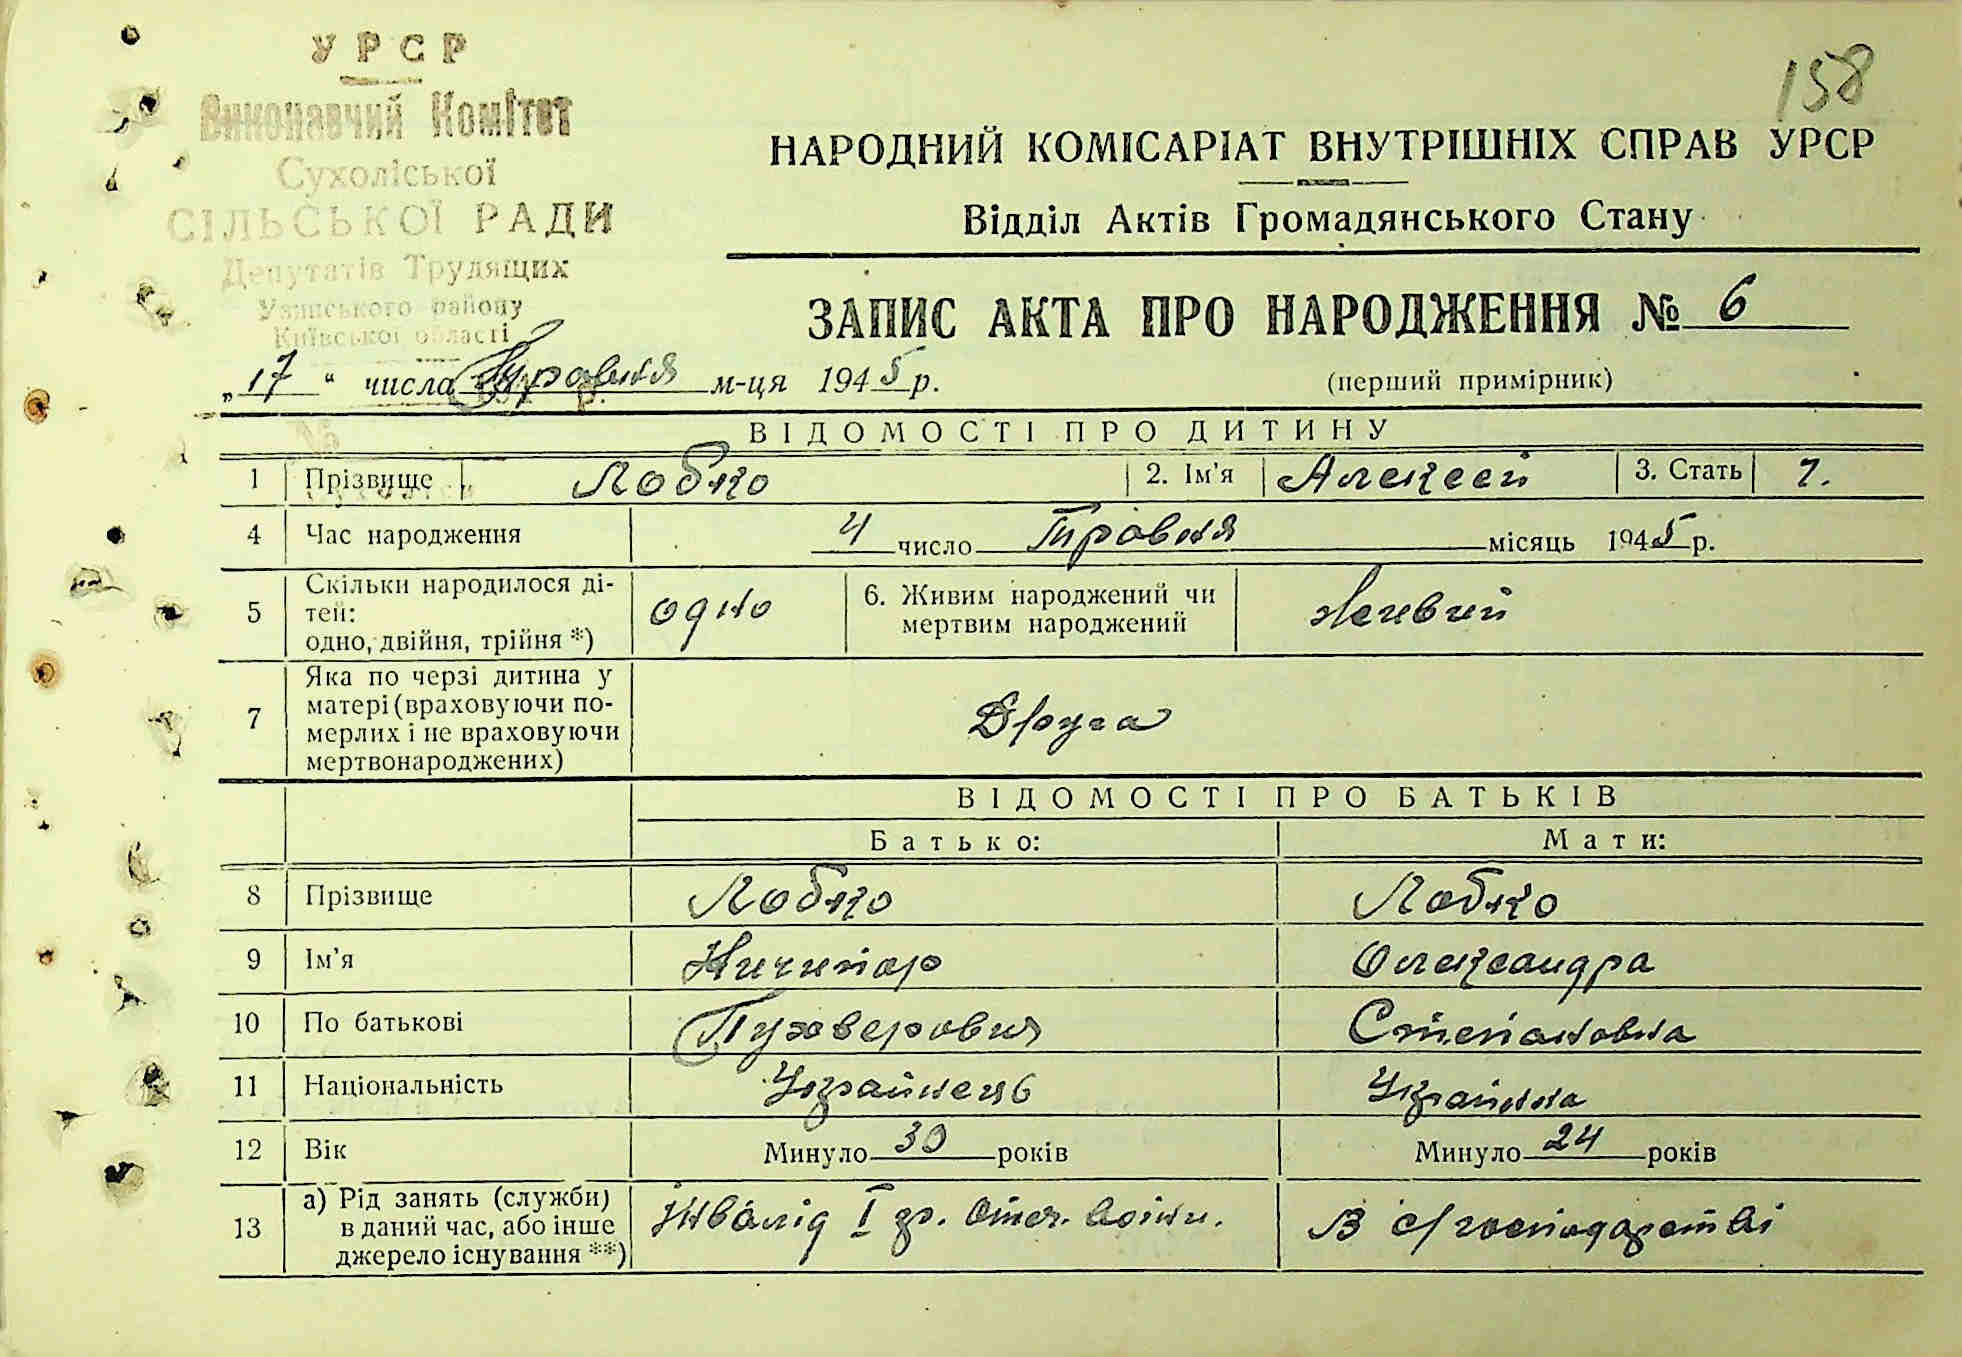 158
УРСР
Виконавчий Комітет
Сухоліської
СІЛЬСЬКОЇ РАДИ
Депутатів Трудящих
Узинського району
Київської області
НАРОДНИЙ КОМІСАРІАТ ВНУТРІШНІХ СПРАВ УРСР
Відділ Актів Громадянського Стану
ЗАПИС АКТА ПРО НАРОДЖЕННЯ № 6
„17“ числа Травня м-ця 1945 р.
(перший примірник)
ВІДОМОСТІ ПРО ДИТИНУ
1 Прізвище Лобко 2. Ім'я Алексей 3. Стать ч.
4 Час народження 4 число Травня місяць 1945 р.
5 Скільки народилося ді-
тей:
одно, двійня, трійня *) одно 6. Живим народжений чи
мертвим народжений живий
7 Яка по черзі дитина у
матері (враховуючи по-
мерлих і не враховуючи
мертвонароджених) Друга
ВІДОМОСТІ ПРО БАТЬКІВ
Батько: Мати:
8 Прізвище Лобко Лобко
9 Ім'я Ничипор Олександра
10 По батькові Степановна
11 Національність Українець Українка
12 Вік Минуло 30 років Минуло 24 років
13 а) Рід занять (служби)
в даний час, або інше
джерело існування **) Інвалід І гр. Отеч. войни. В с/господарстві